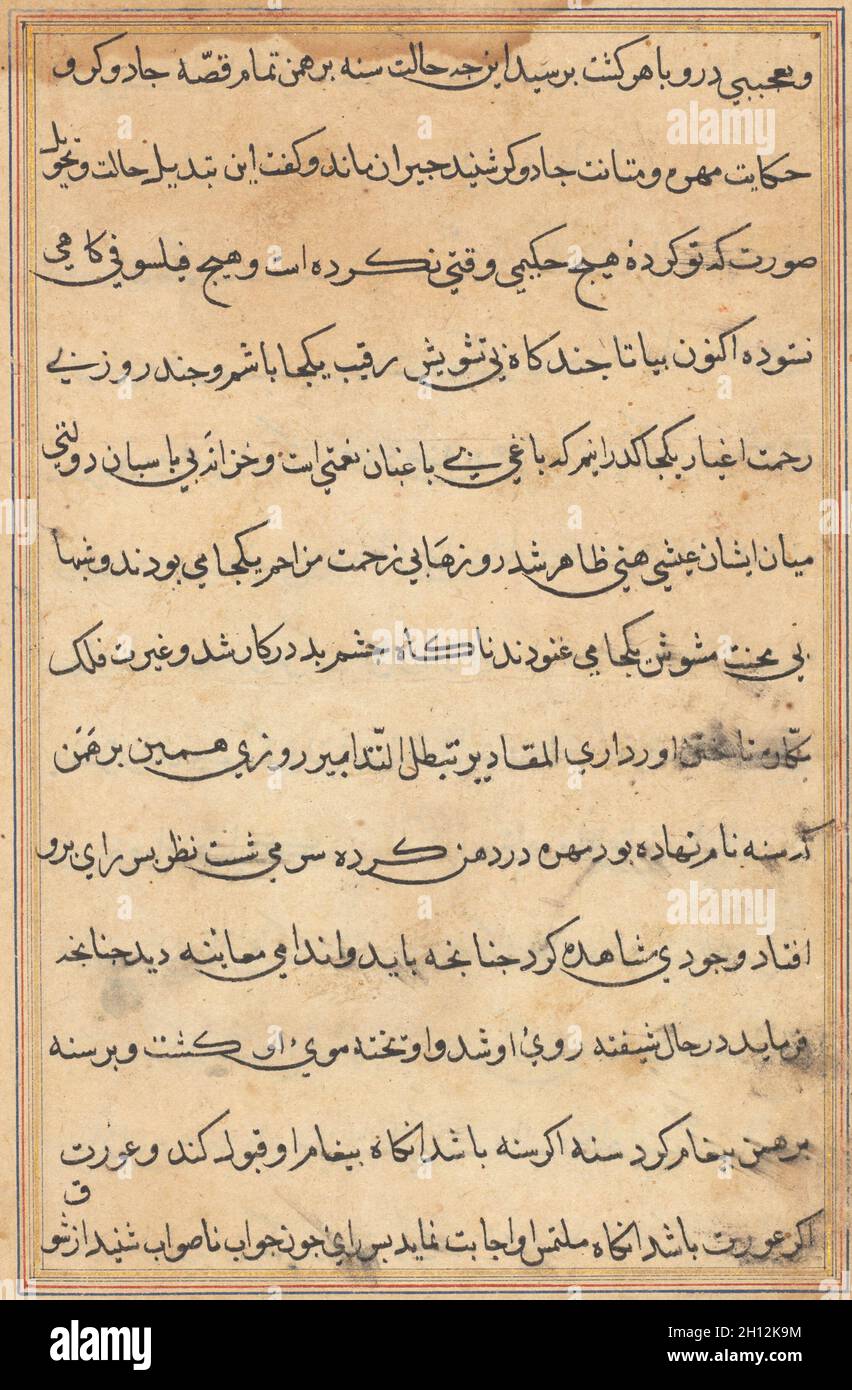 و تعجبی درو باهر کشت برسید این جه حالت سنه برهمن تمام قصّه جادو کر و
حکایت مهره و متانت جادو کر شنید حیران ماند و کفت این تبدیل حالت و تحویل
صورت که تو کردهٔ هیج حکیمی وقتی نکرده است و هیج فیلسوفی کاهی
ننموده اکنون بیا تا جند کاه بی تشویش رقیب یکجا باشم و جند روز بی
زحمت اغیار یکجا کذرانیم که باغی بی باغبان نعمتی است و خزانهٔ بی باسبان دولتی
میان ایشان عیشی هنی ظاهر شد روزها بی زحمت مزاحم یکجا می بودند و شبها
بی محنت مشوش یکجا می غنودند ناکاه جشم بد در کار شد و غیرت فلک
مکّار تاختن اورد اری المقادیر تبطل التّدابیر روزی همین برهَمن
که سنه نام نهاده بود مهره در دهن کرده سر می شست نظر بسر رای برو
افتاد وجودی مشاهده کرد جنانجه باید و اندامی معاینه دید جنانجه
فرماید در حال شیفته رویٔ او شد و اوتخته مویٔ او کشت و بر سنه
برهمن بیغام کرد سنه اکر سنه باشد انکاه بیغام او قبول کند و عورت
ق
اکر عورت باشد انکاه ملتمس او اجابت نماید بسر رای جون جواب ناصواب شنید از شو
alamy
Image ID: 2H12K9M
www.alamy.com